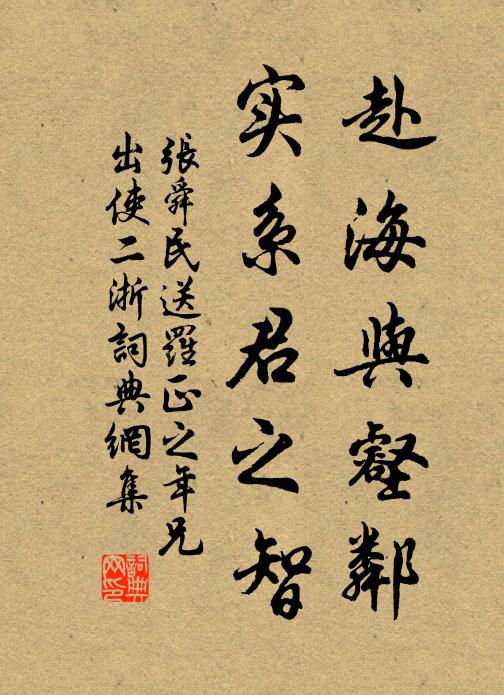 赴海與壑鄰
实系君之智
張舜民送羅正之年兄
出使二浙詞典網集
詞典网印